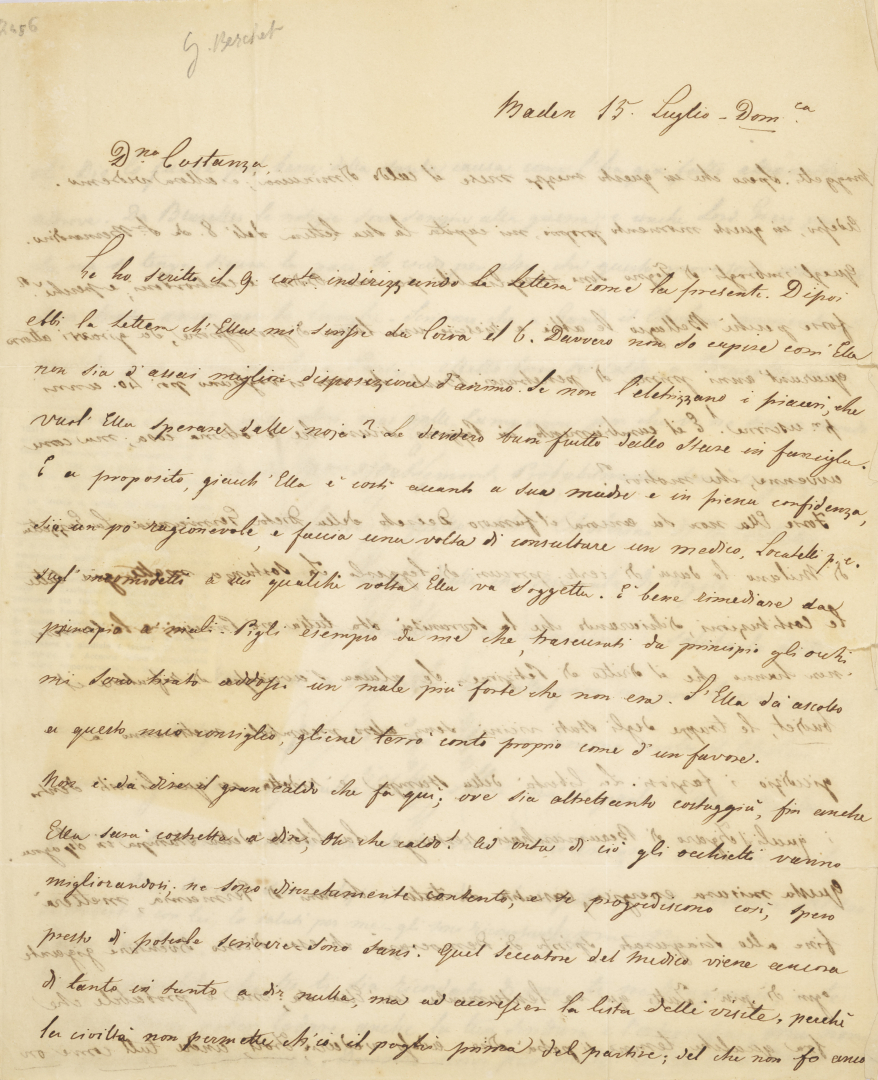 2456
G. Berchet
Baden 15. Luglio - Dom.ca
D.na Costanza,
Le ho scritto il 9 costì indirizzando la lettera come la presente. Dipoi
ebbi la lettera ch'Ella mi scrisse da Coira el 6. Davvero non so capire com'Ella
non sia d'assai migliori disposizione d'animo. Se non l'eletrizzano i piaceri, che
vuol'Ella sperare dalle noje? Le desidero buon frutto dallo stare in famiglia.
E a proposito, giacch'Ella è costì accanto a sua madre e in piena confidenza,
sia un po' ragionevole, e faccia una volta di consultare un medico, Locatelli p.e.
sugl'incomodetti a cui qualche volta Ella va soggetta. È bene rimediare da
principio a' mali. Pigli esempio da me che, trascurati da principio gli occhi
mi sono tirato addosso un male più forte che non era. S'Ella dà ascolto
a questo mio consiglio, gliene terrò conto proprio come d'un favore.
Non è da dire il gran caldo che fa qui; ove sia altrettanto costaggiù, fin anche
Ella sarà costretta a dire, Oh che caldo! Ad onta di ciò gli occhietti vanno
migliorandosi; ne sono discretamente contento, e se progrediscono così, spero
presto di poterle scrivere = sono sani. Quel seccatore del medico viene ancora
di tanto in tanto a dir nulla, ma ad accrescer la lista delle visite, perchè
la civiltà non permette ch'io il paghi prima del partire; del che non fo anco